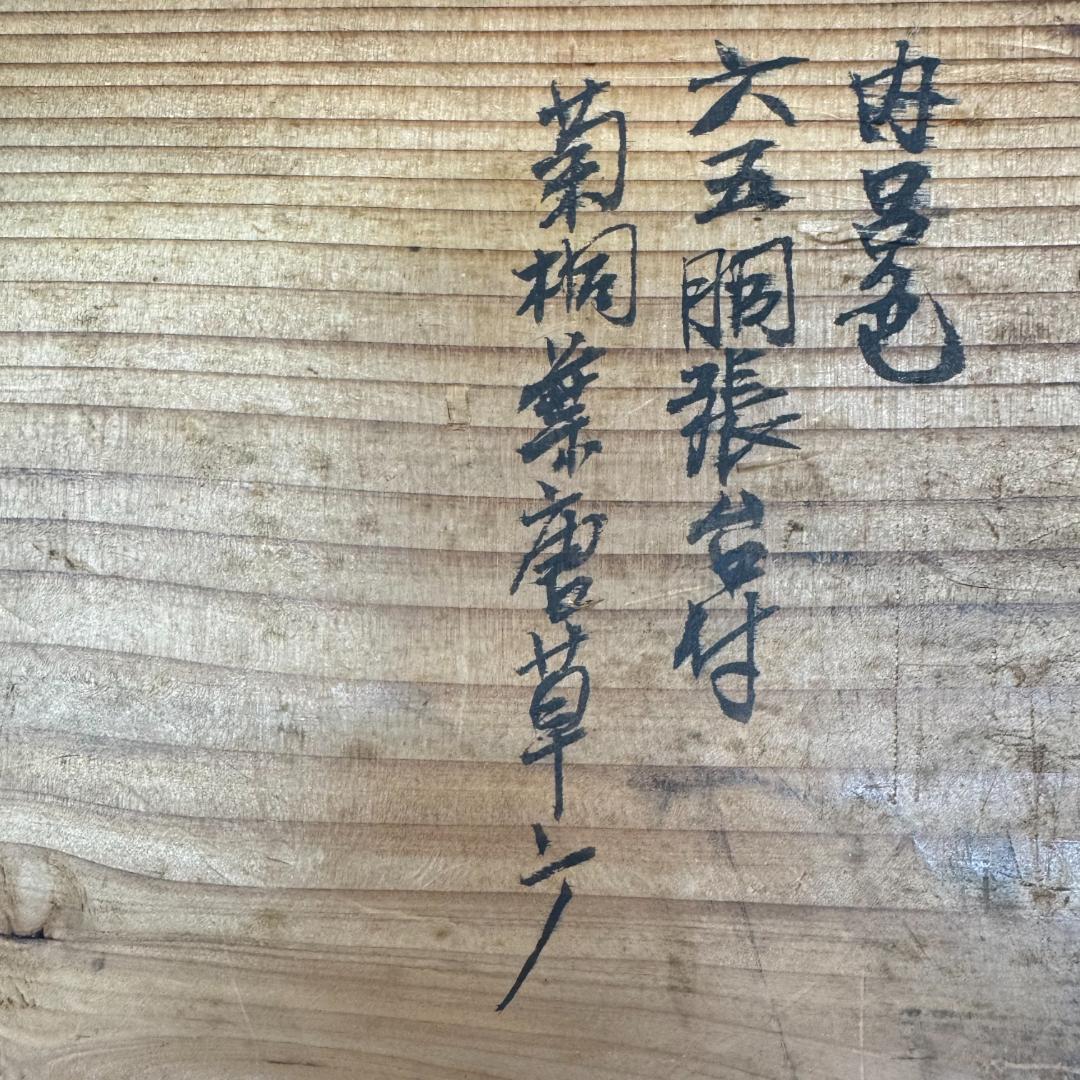 内呂色
六五胴張台付
菊桐葉唐草